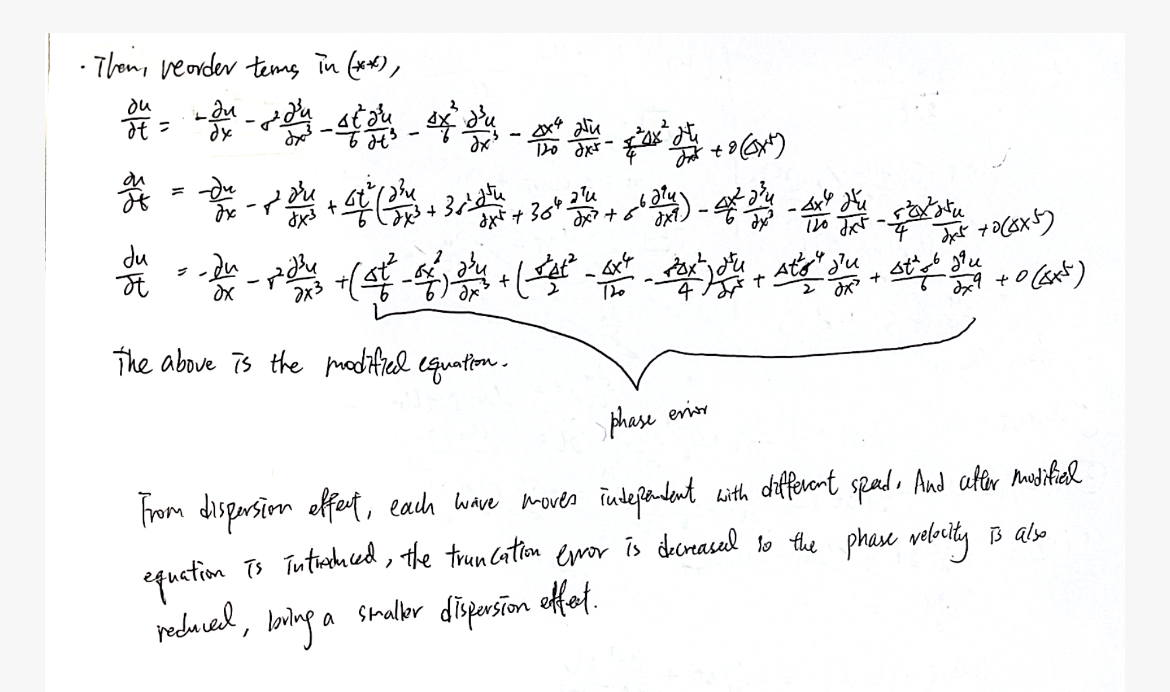 · Then, reorder terms in (**),
∂u/∂t = -∂u/∂x - σ² ∂³u/∂x³ - Δt²/6 ∂³u/∂t³ - Δx²/6 ∂³u/∂x³ - Δx⁴/120 ∂⁵u/∂x⁵ - σ²Δx²/4 ∂⁵u/∂x⁵ + O(Δx⁵)
∂u/∂t = -∂u/∂x - σ² ∂³u/∂x³ + Δt²/6 (∂³u/∂x³ + 3σ² ∂⁵u/∂x⁵ + 3σ⁴ ∂⁷u/∂x⁷ + σ⁶ ∂⁹u/∂x⁹) - Δx²/6 ∂³u/∂x³ - Δx⁴/120 ∂⁵u/∂x⁵ - σ²Δx²/4 ∂⁵u/∂x⁵ + O(Δx⁵)
du/∂t = -∂u/∂x - σ² ∂³u/∂x³ + (Δt²/6 - Δx²/6) ∂³u/∂x³ + (σ²Δt²/2 - Δx⁴/120 - σ²Δx²/4) ∂⁵u/∂x⁵ + Δt²σ⁴/2 ∂⁷u/∂x⁷ + Δt²σ⁶/6 ∂⁹u/∂x⁹ + O(Δx⁵)
The above is the modified equation.
phase error
From dispersion effect, each wave moves independent with different speed. And after modified
equation is introduced, the truncation error is decreased so the phase velocity is also
reduced, a smaller dispersion effect.